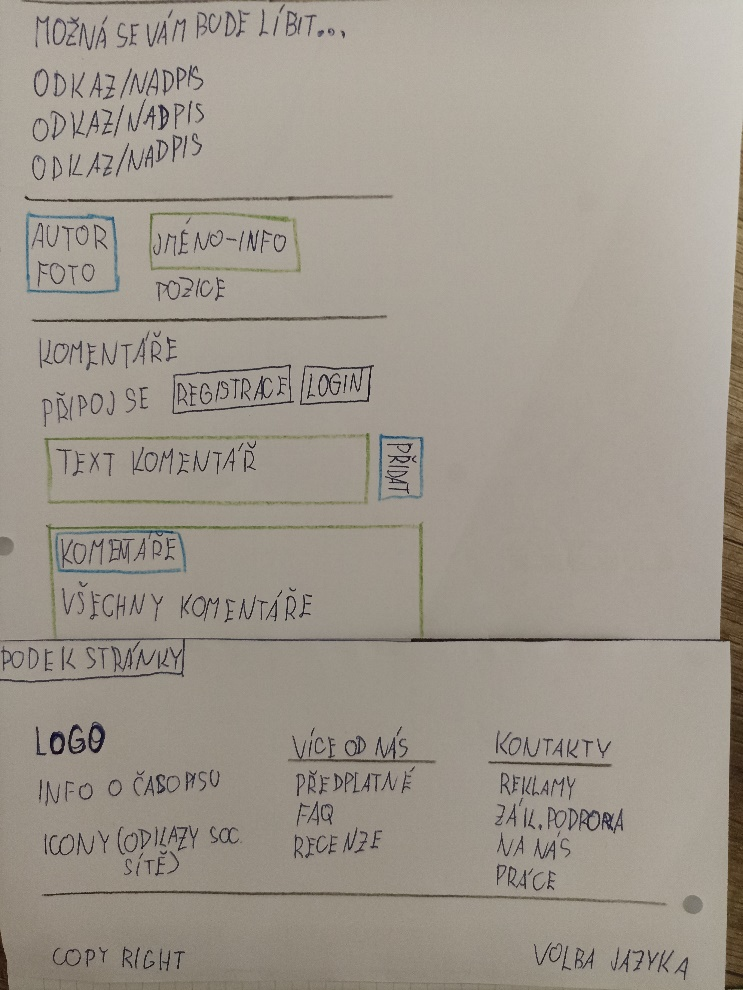 MOŽNÁ SE VÁM BUDE LÍBIT...
ODKAZ/NADPIS
ODKAZ/NADPIS
ODKAZ/NADPIS
AUTOR
FOTO
JMÉNO-INFO
POZICE
KOMENTÁŘE
PŘIPOJ SE REGISTRACE LOGIN
TEXT KOMENTÁŘ
PŘIDAT
KOMENTÁŘE
VŠECHNY KOMENTÁŘE
PODEK STRÁNKY
LOGO
INFO O ČASOPISU
ICONY (ODKAZY SOC.
SÍTĚ)
VÍCE OD NÁS
PŘEDPLATNÉ
FAQ
RECENZE
KONTAKTY
REKLAMY
ZÁK. PODPORA
NA NÁS
PRÁCE
COPY RIGHT
VOLBA JAZYKA